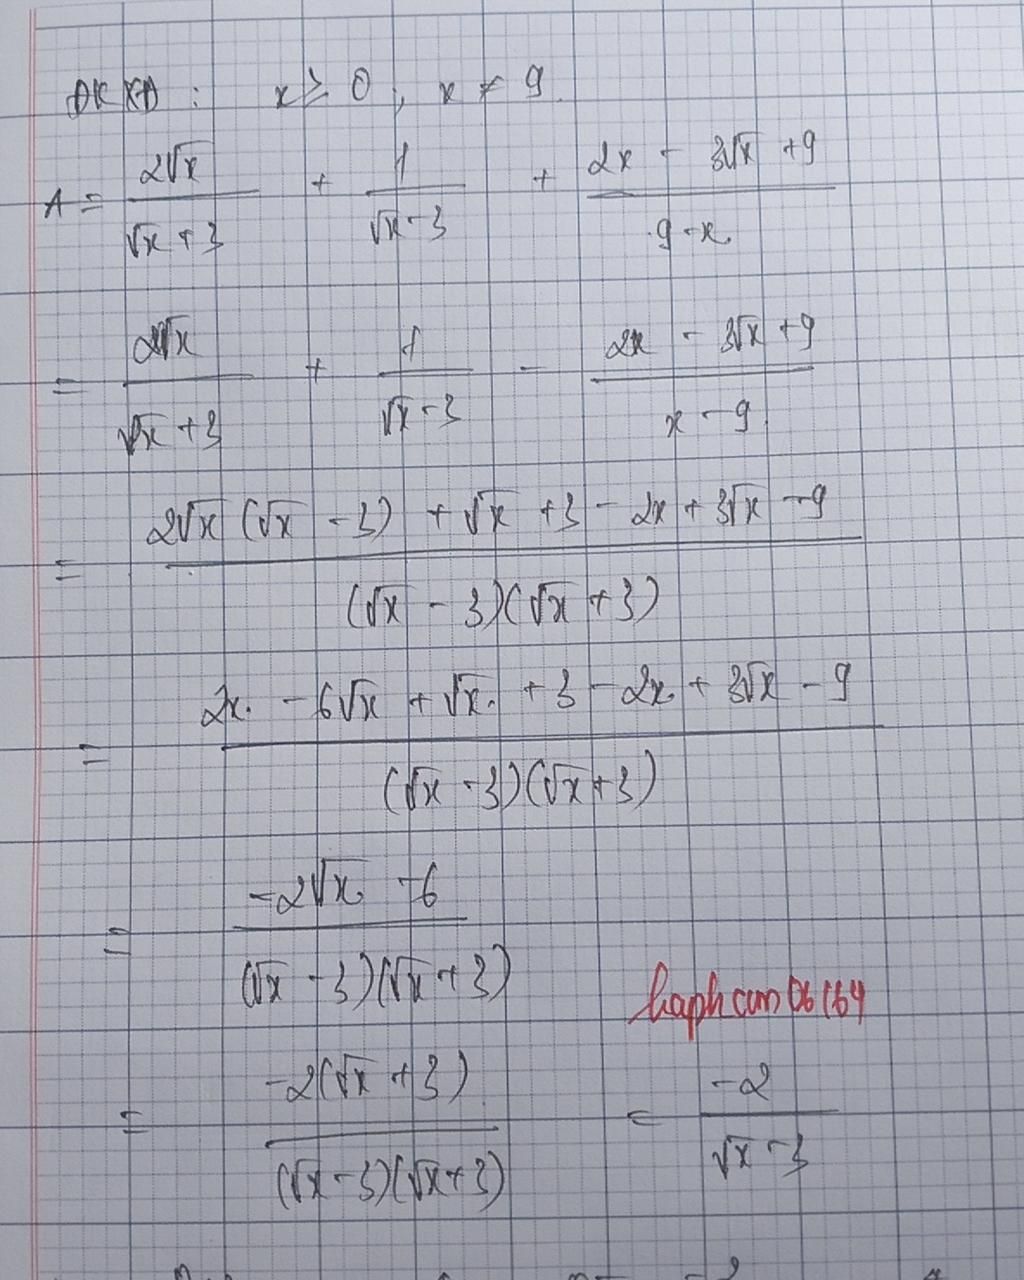 ĐKXĐ : x ≥ 0, x ≠ 9
A = 2√x / (√x + 3) + 1 / (√x - 3) + (2x - 3√x + 9) / (9 - x)
= 2√x / (√x + 3) + 1 / (√x - 3) - (2x - 3√x + 9) / (x - 9)
= (2√x (√x - 3) + √x + 3 - 2x + 3√x - 9) / ((√x - 3)(√x + 3))
= (2x - 6√x + √x + 3 - 2x + 3√x - 9) / ((√x - 3)(√x + 3))
= (-2√x - 6) / ((√x - 3)(√x + 3))
= -2(√x + 3) / ((√x - 3)(√x + 3)) = -2 / (√x - 3)